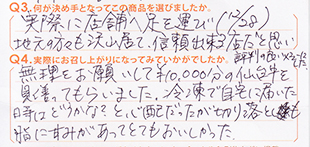 Q3.何が決め手となってこの商品を選びましたか。
実際に店舗へ足を運び(12/28)
地元の方も沢山居て、信頼出来る店だと思い
評判の良い
Q4.実際にお召し上がりになってみていかがでしたか。
無理をお願いして¥10,000/分の仙台牛を
見備えてもらいました。冷凍で自宅に届いた
時はどうかな?と、心配だったが切り落とし
脂に甘みがあってとてもおいしかった。